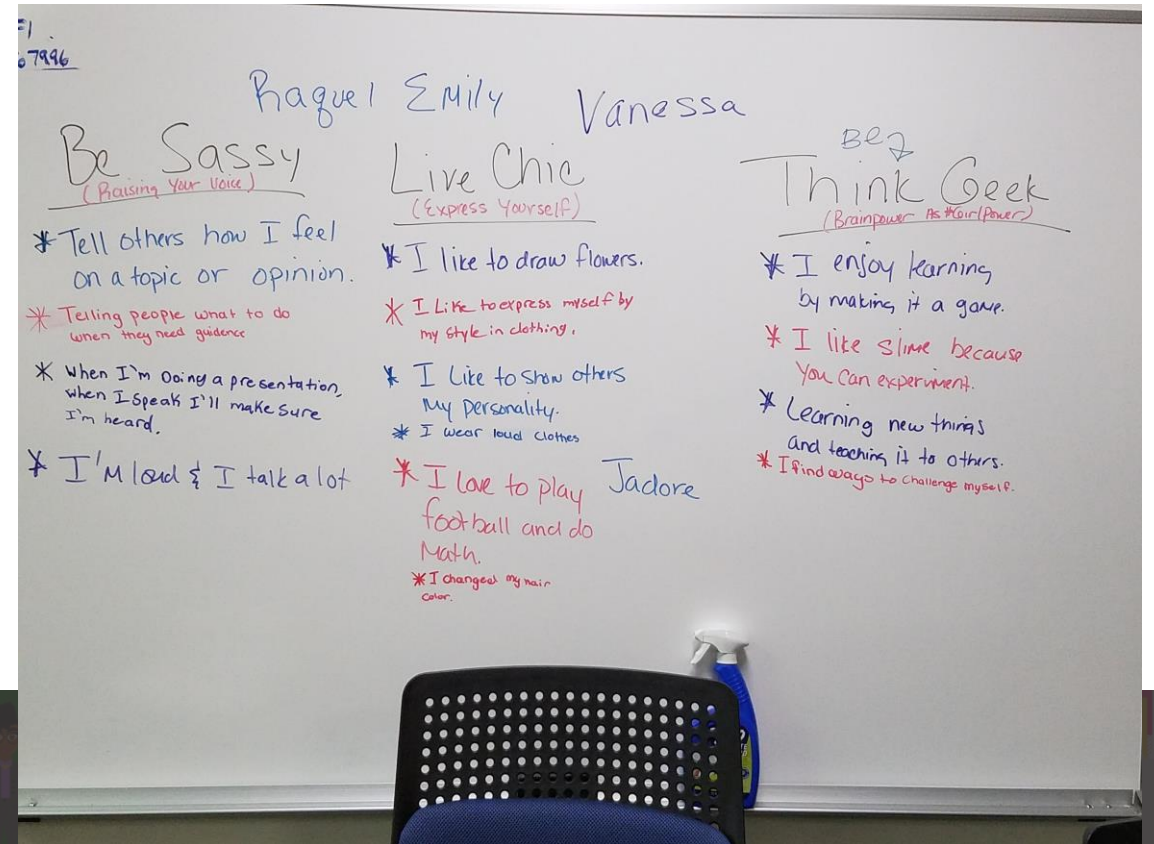 7996
Raquel Emily Vanessa
Be Sassy
(Raising Your Voice)
* Tell others how I feel
on a topic or opinion.
* Telling people what to do
when they need guidence
* When I'm Doing a presentation,
when I speak I'll make sure
I'm heard.
* I'M loud & I talk a lot
Live Chic
(Express Yourself)
* I like to draw flowers.
* I Like to express myself by
my style in clothing.
* I Like to show others
My personality.
* I wear loud clothes
* I love to play
football and do
Math.
* I changed my hair
color.
Jadore
Think Geek
(Brainpower As #GirlPower)
* I enjoy learning
by making it a game.
* I like slime because
you can experiment.
* Learning new things
and teaching it to others.
* I find ways to challenge myself.